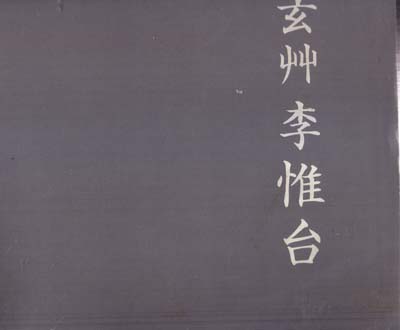 玄艸李惟台